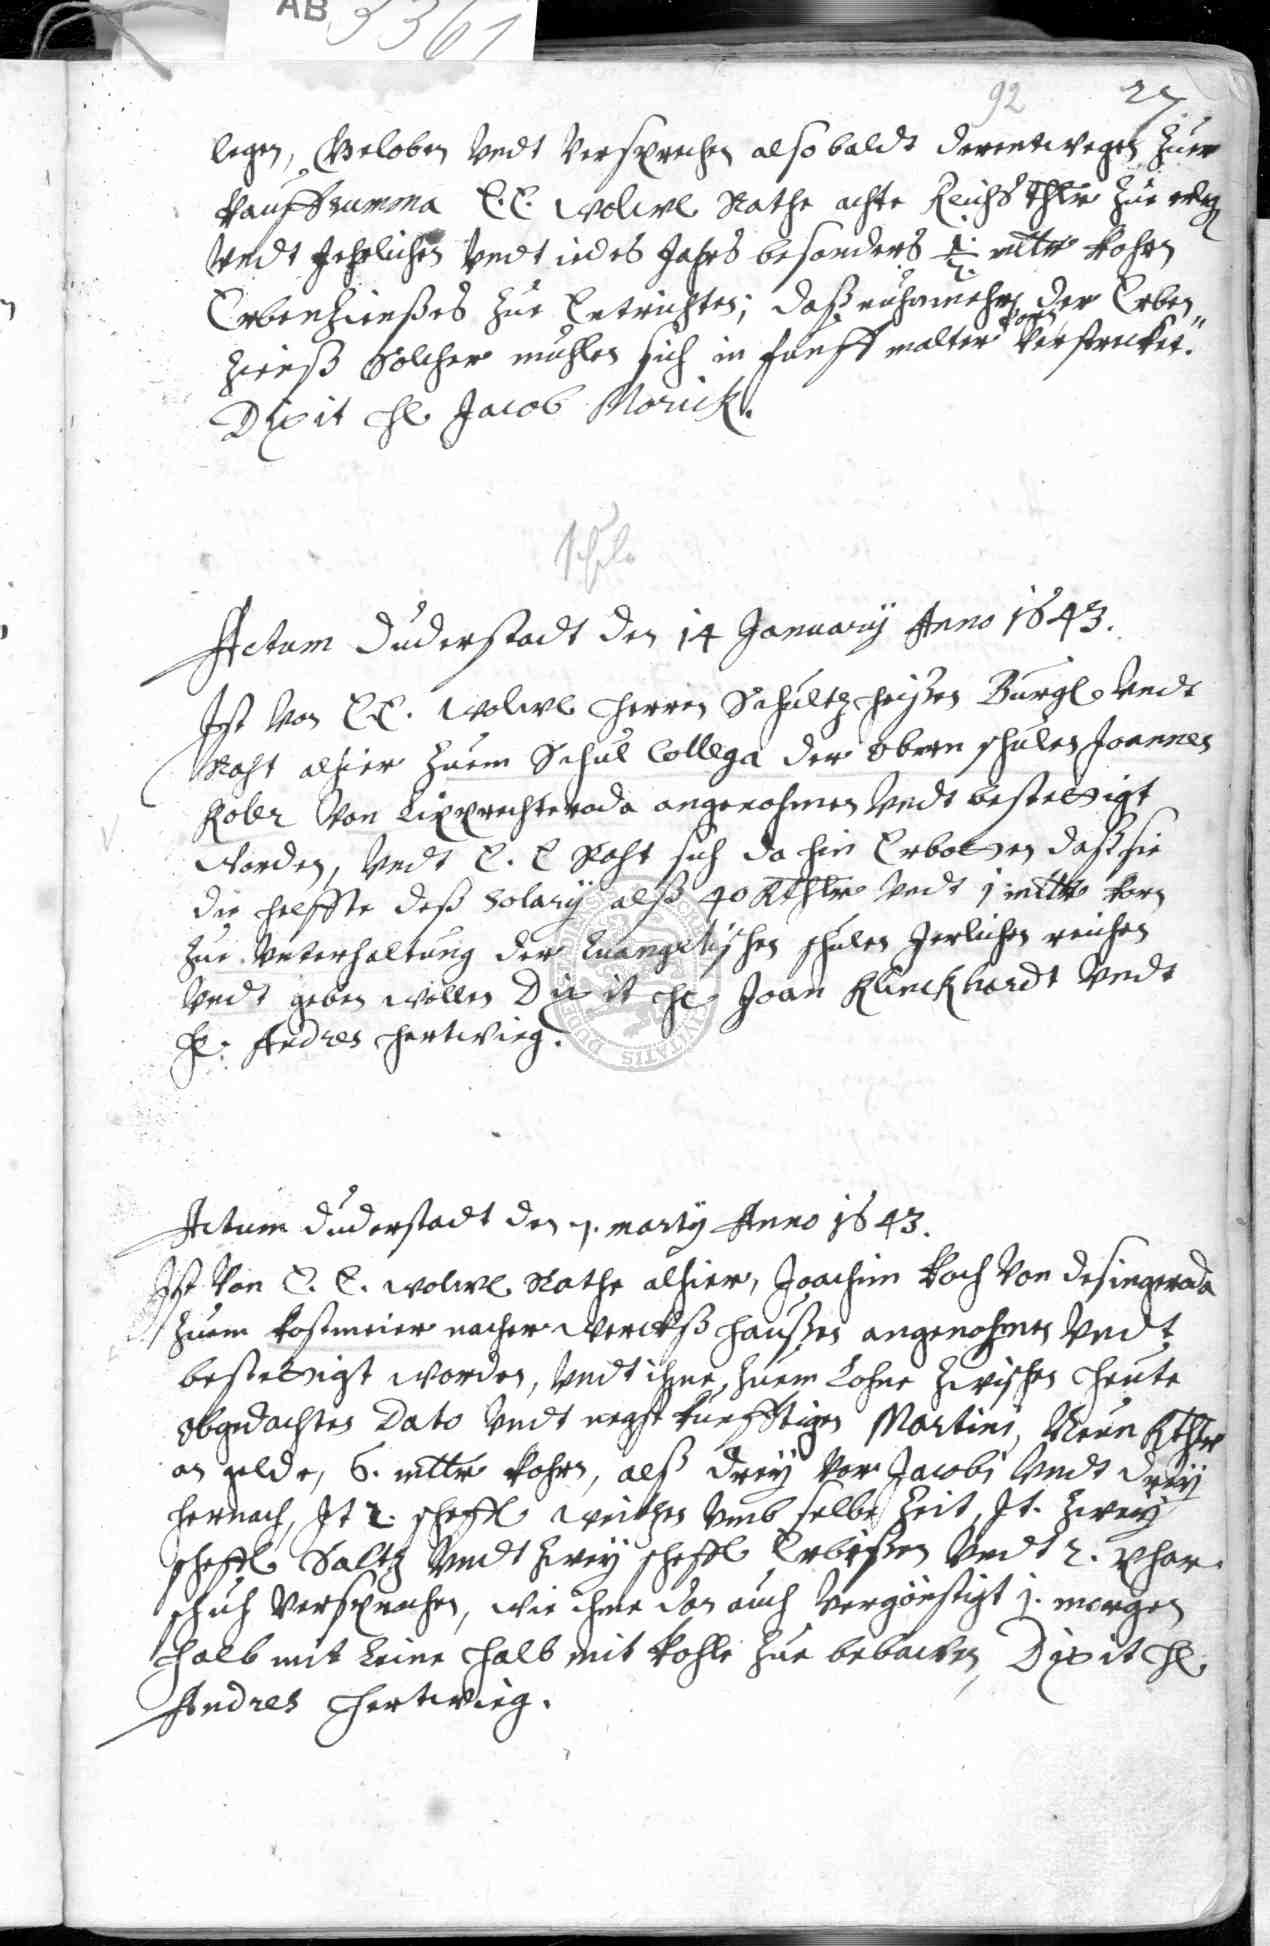 AB 3361
92 27
legen, Geloben Vndt Versprechen alsobaldt derentwegen Zuer
Kauffsumma E. E. wolwl Rathe achte Reichs Thlr Zue erleg
Vndt Jehrlichen Vndt iedes Jahrs besonders ½ mltr Kohrn
Erbenzienßes Zue Entrichten; daß nuhnmehr der Erben
Zienß Solcher muhlen sich in fünff malter Korn Verstrecket.
Dixit H. Jacob Morick.
Schule
Actum Duderstadt den 14 January Anno 1643.
Ist Von E. E. wolwl Herren Schultzheißen Burgl. Vndt
Raht alhier Zuem Schul Collega der obern schulen Joannes
Kober Von Lipprechteroda angenohmen Vndt bestettigt
Worden, Vndt E. E Raht sich da hin Erbotten daß sie
die helffte deß Solary alß 40 Rthlr Vndt 1 mltr Korn
Zue Vnterhaltung der Euangelischen schulen Jerlichen reichen
Vndt geben wollen Dixit H. Joan Klinckhardt Vndt
H. Andres Hertwieg.
Actum Duderstadt den 1. marty Anno 1643.
Ist Von E. E. wolwl Rathe alhier, Joachim Koch Von Desingeroda
Zuem Kostmeier nacher Werckß Haußen angenohmen Vndt
bestettigt worden, Vndt ihme Zuem Lohne Zwischen Heute
obgedachten Dato Vndt negst Künfftigen Martini, Neun Rthlr
an gelde, 6. mltr Kohrn, alß dreÿ Vor Jacobi Vndt dreÿ
hernach, It 2. scheffl weitzen Vmb selbe Zeit, It. Zweÿ
scheffl Saltz Vndt Zweÿ scheffl Erbißen Vndt 2. phar
schuh Versprochen, wie ihme dan auch Vergönstigt 1. morgen
halb mit Leine halb mit Kohle Zue bebawen, Dixit H.
Andres Hertwieg.